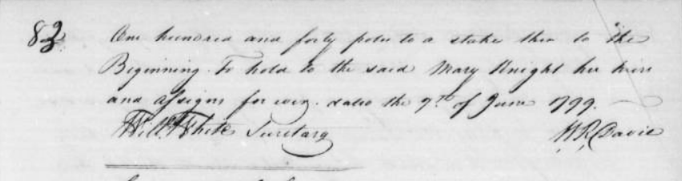 82 One hundred and forty poles to a stake then to the
Beginning. To hold to the said Mary Knight her heirs
and assigns for ever. dated the 7th of June 1799.
Will White Secretary W.R. Davie